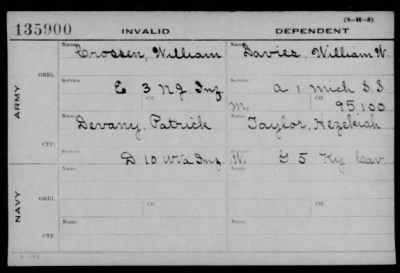 (3-H-3)
135900 INVALID DEPENDENT
Name Crossen, William Name Davies, William W.
ARMY
ORIG. Service E 3 N J Inf Service A 1 Mich S.S
Ctf. M. Ctf. 95100
Name Devany, Patrick Name Taylor, Hezekiah
CTF. Service D 10 W Va Inf Service W. G 5 Ky Cav
NAVY
Name Name
ORIG. Ctf. Ctf.
Name Name
CTF.